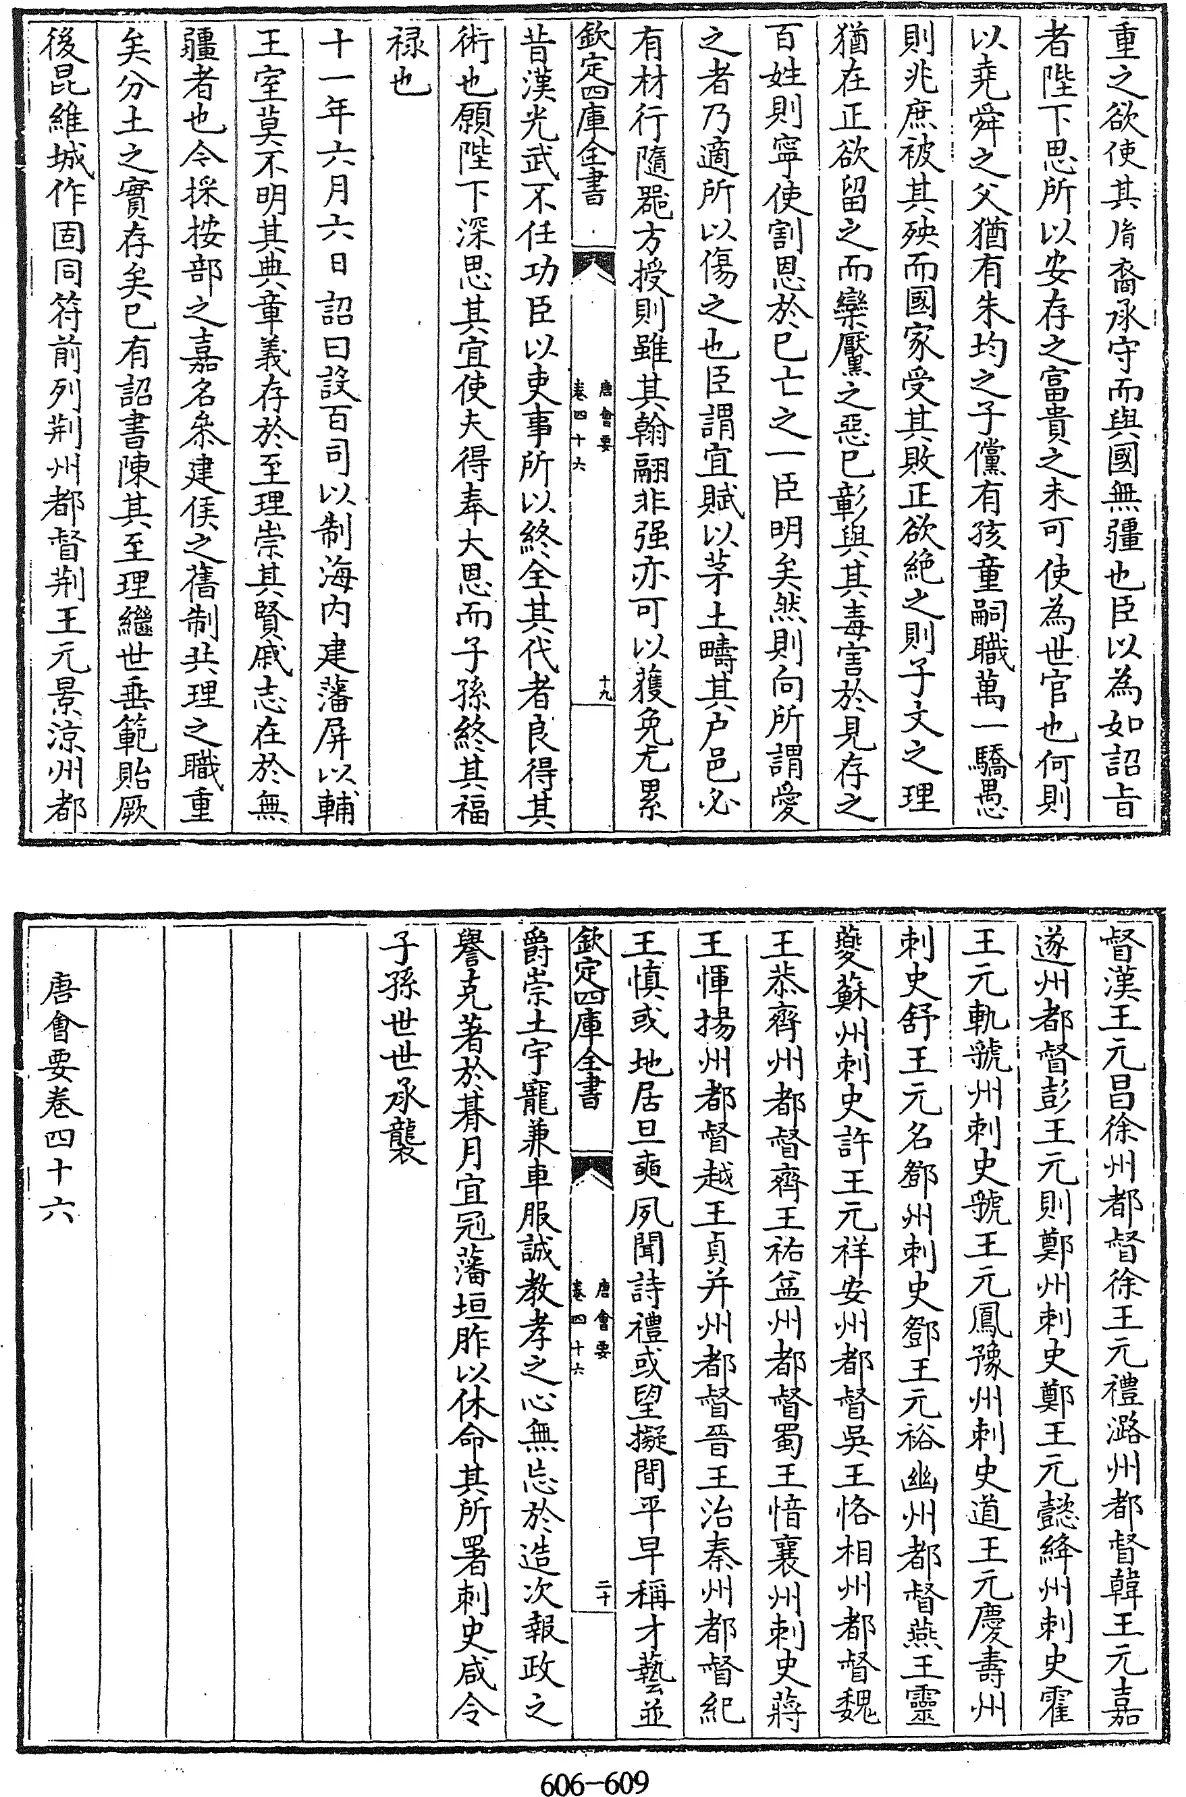 重之欲使其胤裔承守而與國無疆也臣以為如詔旨
者陛下思所以安存之富貴之未可使為世官也何則
以堯舜之父猶有朱均之子儻有孩童嗣職萬一驕愚
則兆庶被其殃而國家受其敗正欲絶之則子文之理
猶在正欲留之而欒黶之惡已彰與其毒害於見存之
百姓則寧使割恩於已亡之一臣明矣然則向所謂愛
之者乃適所以傷之也臣謂宜賦以茅土疇其户邑必
有材行隨器方授則雖其翰翮非强亦可以獲免尤累
欽定四庫全書
唐會要
卷四十六
十九
昔漢光武不任功臣以吏事所以終全其代者良得其
術也願陛下深思其宜使夫得奉大恩而子孫終其福
禄也
十一年六月六日詔曰設百司以制海内建藩屏以輔
王室莫不明其典章義存於至理崇其賢戚志在於無
疆者也令採按部之嘉名叅建侯之舊制共理之職重
矣分土之實存矣已有詔書陳其至理繼世垂範貽厥
後昆維城作固同符前列荆州都督荆王元景涼州都
督漢王元昌徐州都督徐王元禮潞州都督韓王元嘉
遂州都督彭王元則鄭州刺史鄭王元懿絳州刺史霍
王元軌虢州刺史虢王元鳳豫州刺史道王元慶壽州
刺史舒王元名鄧州刺史鄧王元裕幽州都督燕王靈
夔蘇州刺史許王元祥安州都督吳王恪相州都督魏
王恭齊州都督齊王祐益州都督蜀王愔襄州刺史蔣
王惲揚州都督越王貞并州都督晉王治秦州都督紀
王慎或地居旦奭夙聞詩禮或望擬間平早稱才藝並
欽定四庫全書
唐會要
卷四十六
二十
爵崇土宇寵兼車服誠教孝之心無忘於造次報政之
譽克著於朞月宜冠藩垣胙以休命其所署刺史咸令
子孫世世承襲
唐會要卷四十六
606-609